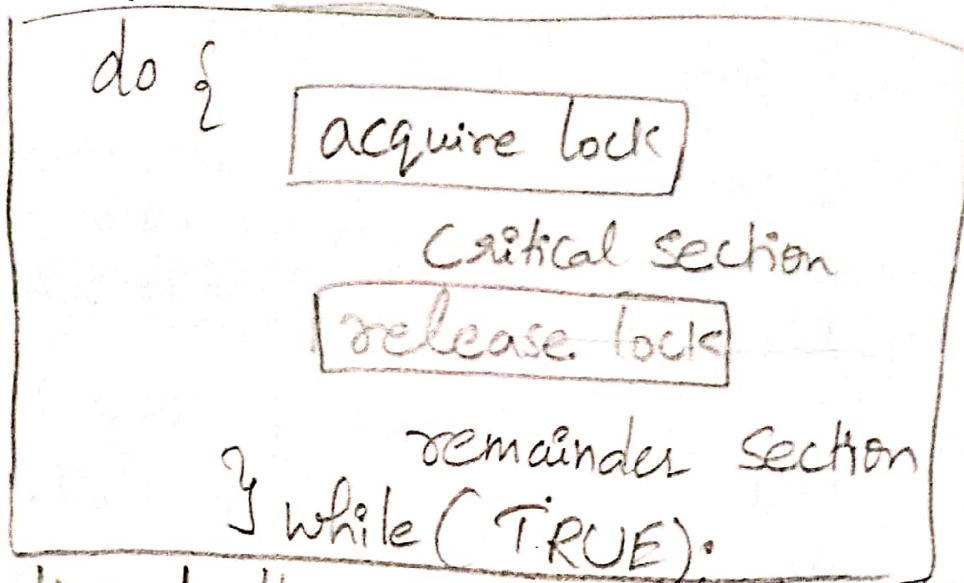 do {
acquire lock
Critical section
release lock
remainder section
} while ( TRUE).